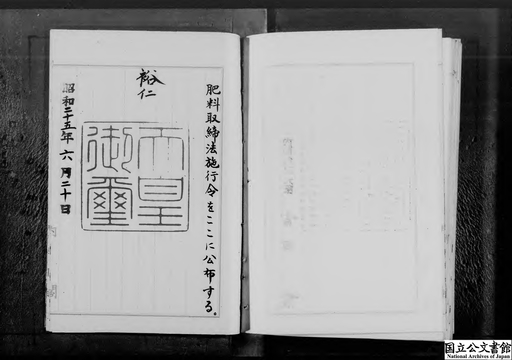 肥料取締法施行令をここに公布する。
裕仁
天皇
御璽
昭和二十五年六月二十日
国立公文書館
National Archives of Japan